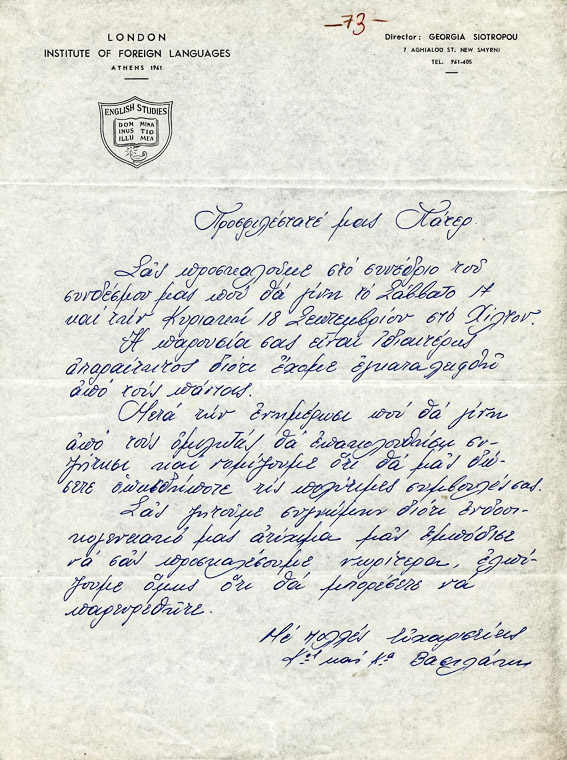 LONDON
INSTITUTE OF FOREIGN LANGUAGES
ATHENS 1961
-73-
Director: GEORGIA SIOTROPOU
7 AGHIALOU ST. NEW SMYRNI
TEL. 961-405
ENGLISH STUDIES
DOM MINA
INUS TIO
ILLU MEA
Προσφιλέστατέ μας Πάτερ
Σᾶς προσκαλοῦμε στό συνέδριο τοῦ
συνδέσμου μας πού θά γίνη τό Σάββατο 17
καί τήν Κυριακή 18 Σεπτεμβρίου στό Χίλτον.
Ἡ παρουσία σας εἶναι ἰδιαιτέρως
ἀπαραίτητος διότι ἔχομε ἐγκαταλειφθῆ
ἀπό τούς πάντας.
Μετά τήν ἐνημέρωσι πού θά γίνη
ἀπό τούς ὁμιλητάς θά ἐπακολουθήση συ-
ζήτησι καί νομίζουμε ὅτι θά μᾶς δώ-
σετε ὁπωσδήποτε τίς πολύτιμες συμβουλές σας.
Σᾶς ζητοῦμε συγνώμην διότι ἐνδοοι-
κογενειακό μας ἀτύχημα μᾶς ἐμπόδισε
νά σᾶς προσκαλέσουμε νωρίτερα, ἐλπί-
ζουμε ὅμως ὅτι θά μπορέσετε νά
παρευρεθῆτε.
Μέ πολλές εὐχαριστίες
Κος καί Κα